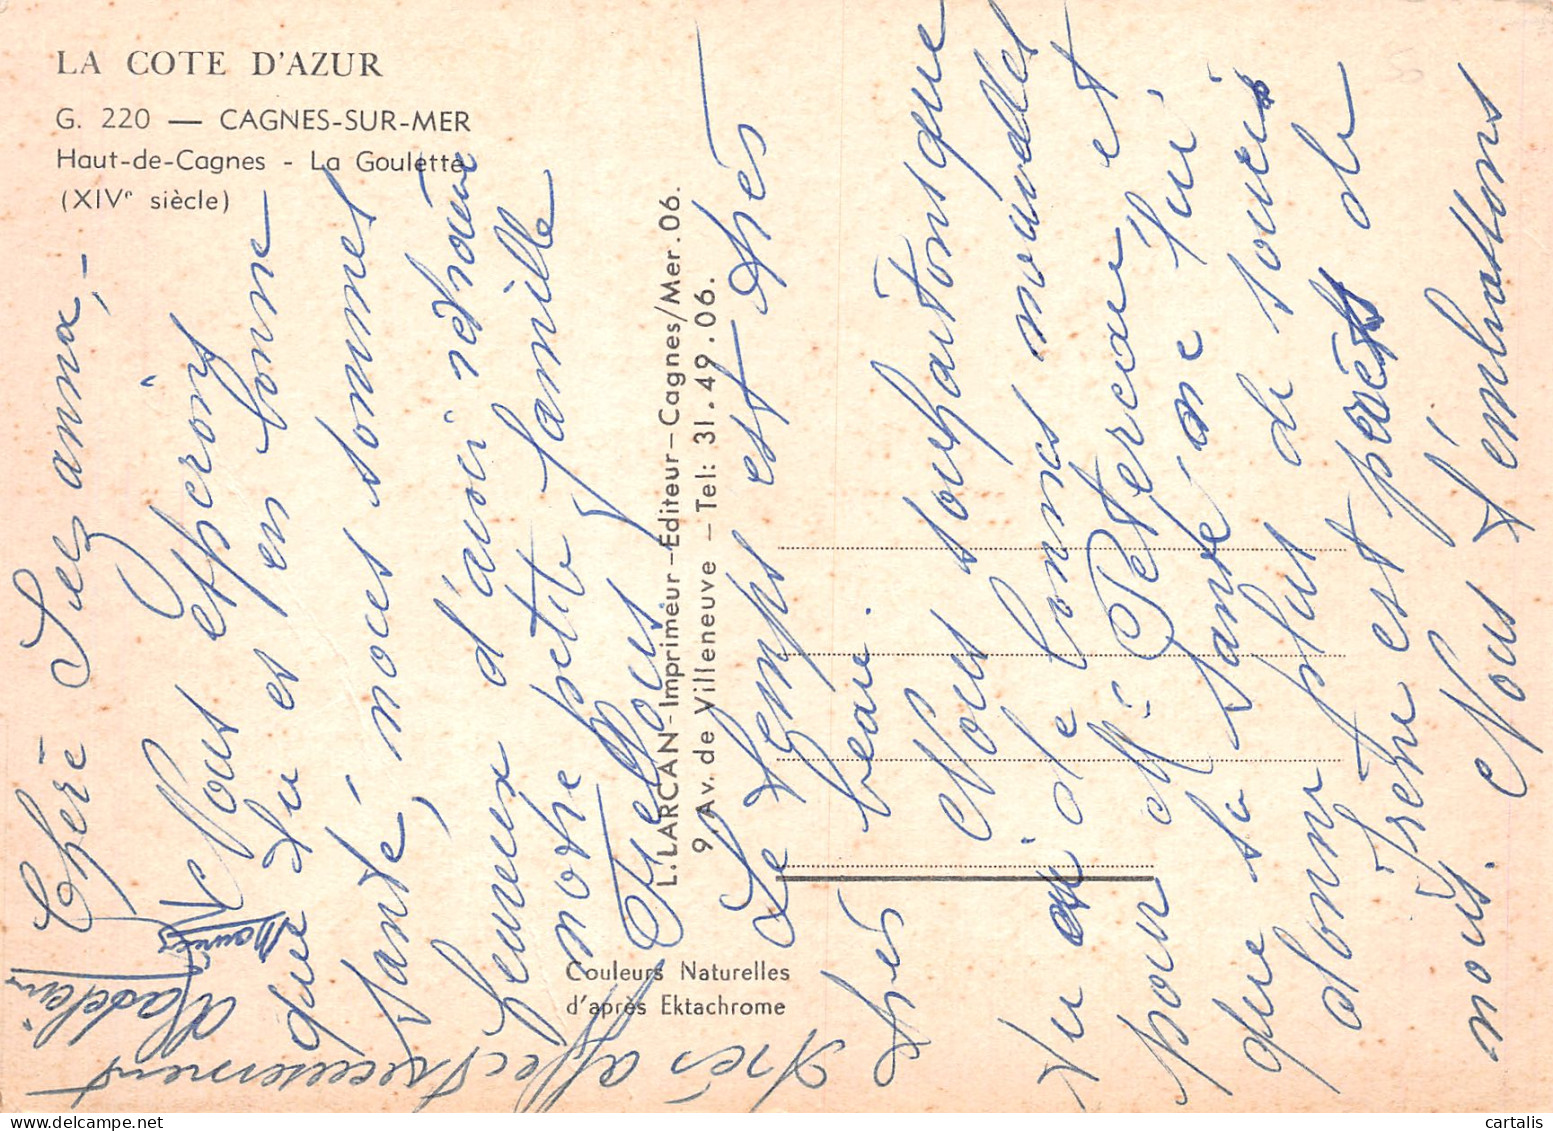 LA COTE D'AZUR
G. 220 — CAGNES-SUR-MER
Haut-de-Cagnes - La Goulette
(XIVe siècle)
L. LARCAN-Imprimeur-Editeur-Cagnes/Mer.06.
9, Av. de Villeneuve - Tel: 31.49.06.
Couleurs Naturelles
d'après Ektachrome
Chère Suzanna,-
Nous esperons
que tu es en bonne
santé, nous sommes
heureux d'avoir retrouvé
notre petite famille
Le temps est très
très beau.
Nous souhaitons que
tu ai de bonnes nouvelles
pour Mr Petereau et
que sa santé ne lui
donne plus de soucis
Irène est près de
nous. Nous t'embrassons
Très affectueusement
Madeleine
Maurice